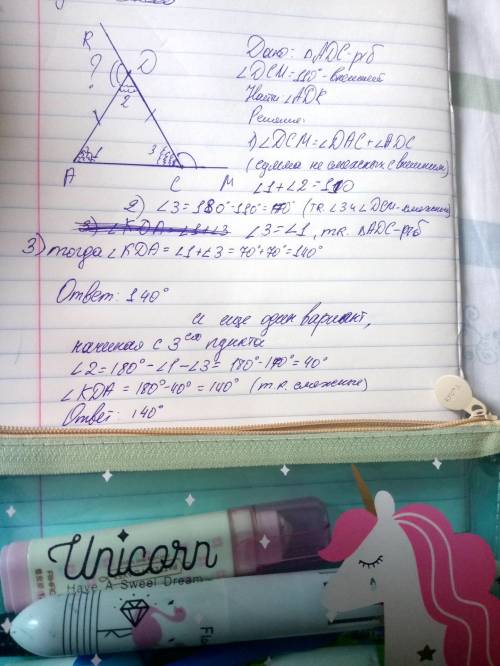 K
D
2
1
3
A
C
M
?
Дано: △ADC-р/б
∠DCM=110°-внешний
Найти: ∠ADK
Решение:
1) ∠DCM=∠DAC+∠ADC
(сумма не смежных с внешним)
∠1+∠2=110
2) ∠3=180°-110°=70° (т.к. ∠3 и ∠DCM-смежные)
3) ∠KDA=∠1+∠3
∠3=∠1, т.к. △ADC-р/б
3) тогда ∠KDA=∠1+∠3=70°+70°=140°
Ответ: 140°
и еще один вариант,
начиная с 3его пункта
∠2=180°-∠1-∠3=180°-140°=40°
∠KDA=180°-40°=140° (т.к. смежные)
Ответ: 140°
Unicorn
Have A Sweet Dream